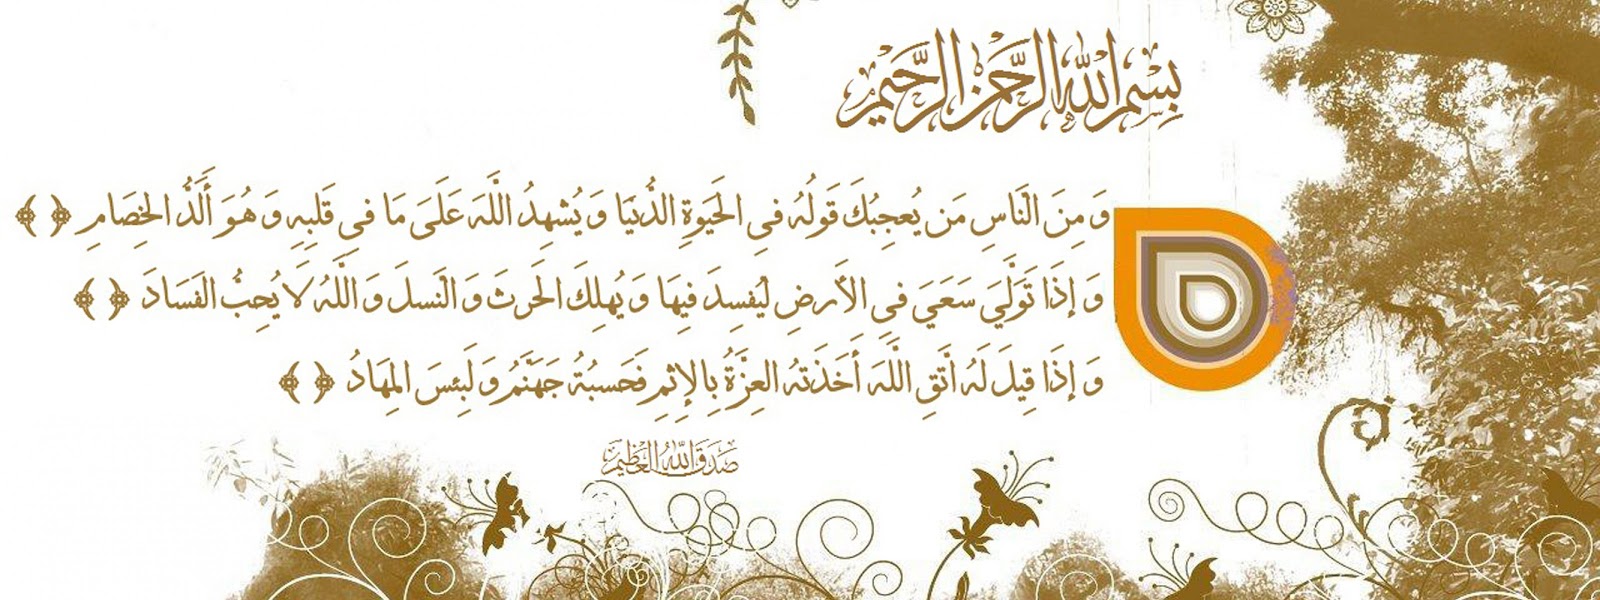 بِسْمِ اللَّهِ الرَّحْمَنِ الرَّحِيمِ
وَ مِنَ النَّاسِ مَن يُعجِبُكَ قَولُهُ فيِ الحَيَوةِ الدُّنيَا وَ يُشهِدُ اللَّهَ عَلَىَ مَا فيِ قَلبِهِ وَ هُوَ أَلَدُّ الخِصَامِ ﴿ ﴾
وَ إِذَا تَوَلَّيَ سَعَيَ فيِ الأَرضِ لِيُفسِدَ فِيهَا وَ يُهلِكَ الحَرثَ وَ النَسلَ وَ اللَّهُ لَا يُحِبُّ الفَسَادَ ﴿ ﴾
وَ إِذَا قِيلَ لَهُ أتَّقِ اللَّهَ أَخَذَتهُ العِزَّةُ بِالإِثمِ فَحَسبُهُ جَهَنَّمُ وَ لَبِئسَ المِهَادُ ﴿ ﴾
صَدَقَ اللَّهُ العَظِيم